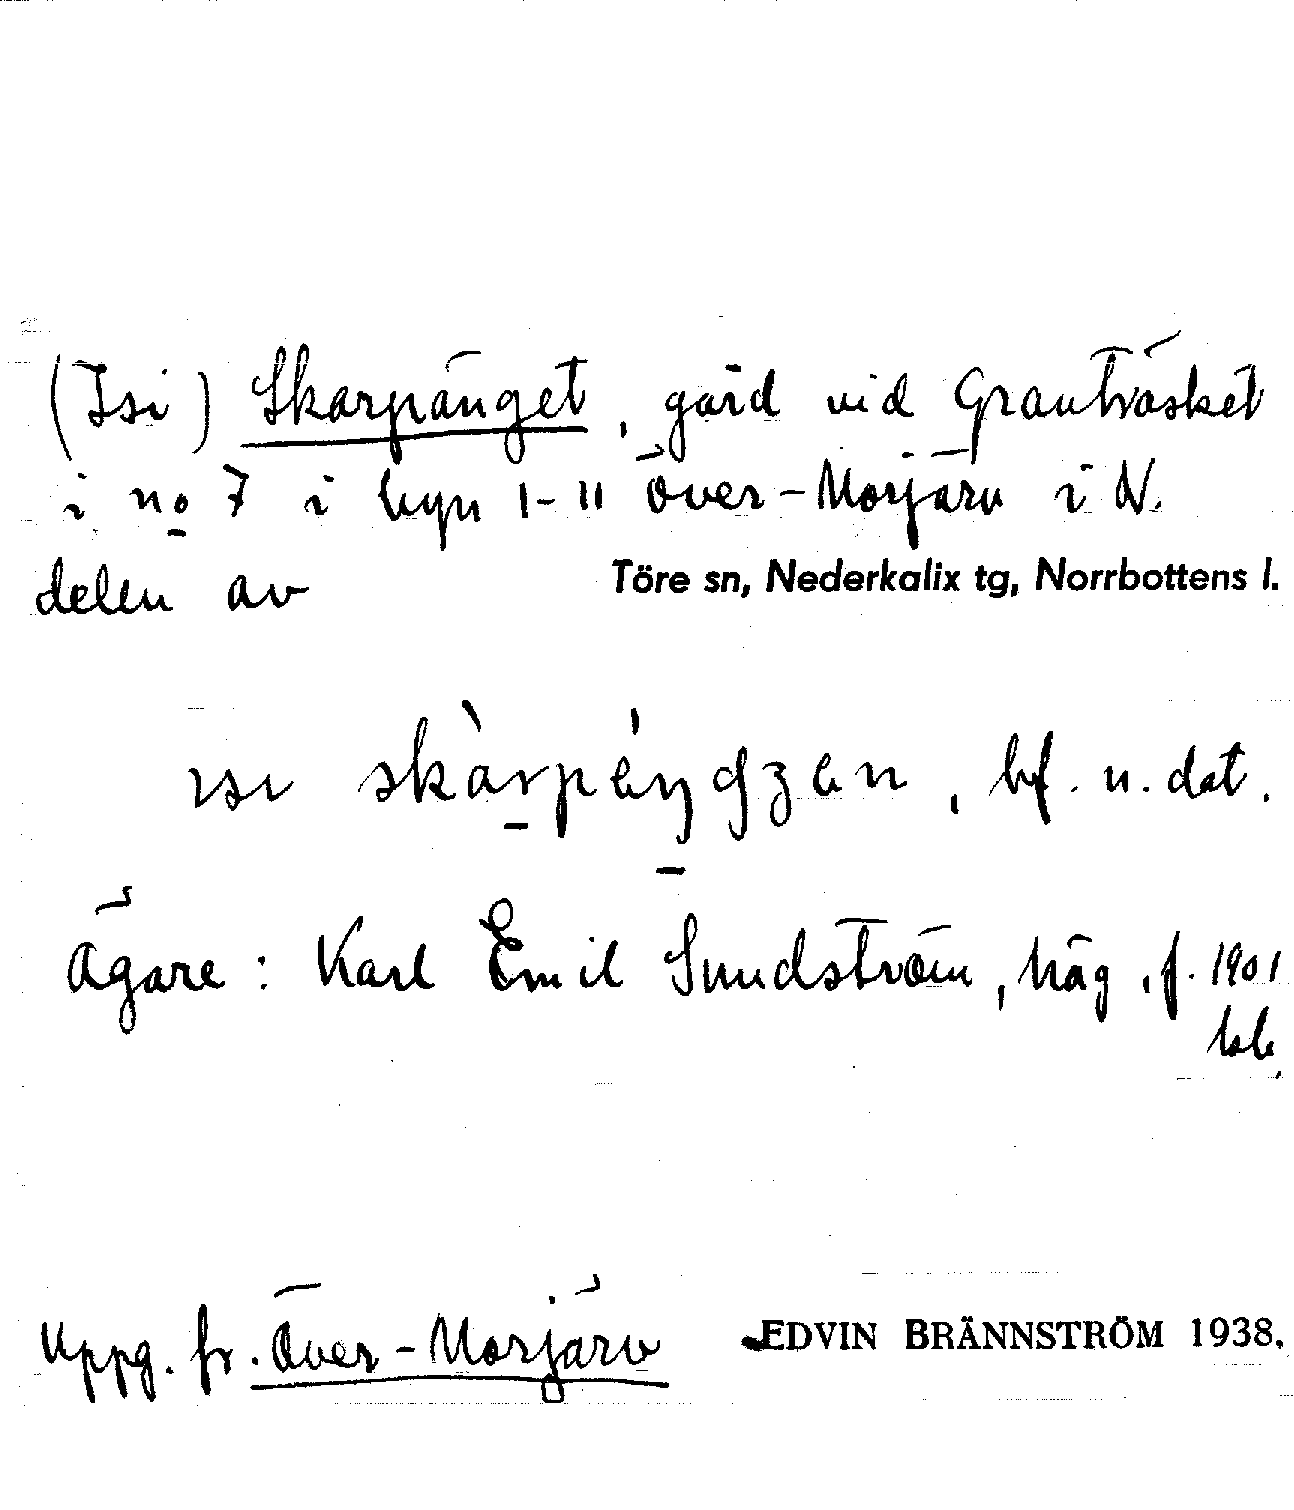 (Isi) Skarpänget, gård vid Granträsket
i no 7 i byn 1-11 Över-Morjärv i N.
delen av Töre sn, Nederkalix tg, Norrbottens l.
bf. n. dat.
Ägare: Karl Emil Sundström, häg, f. 1901
Uppg. fr. Över-Morjärv EDVIN BRÄNNSTRÖM 1938.